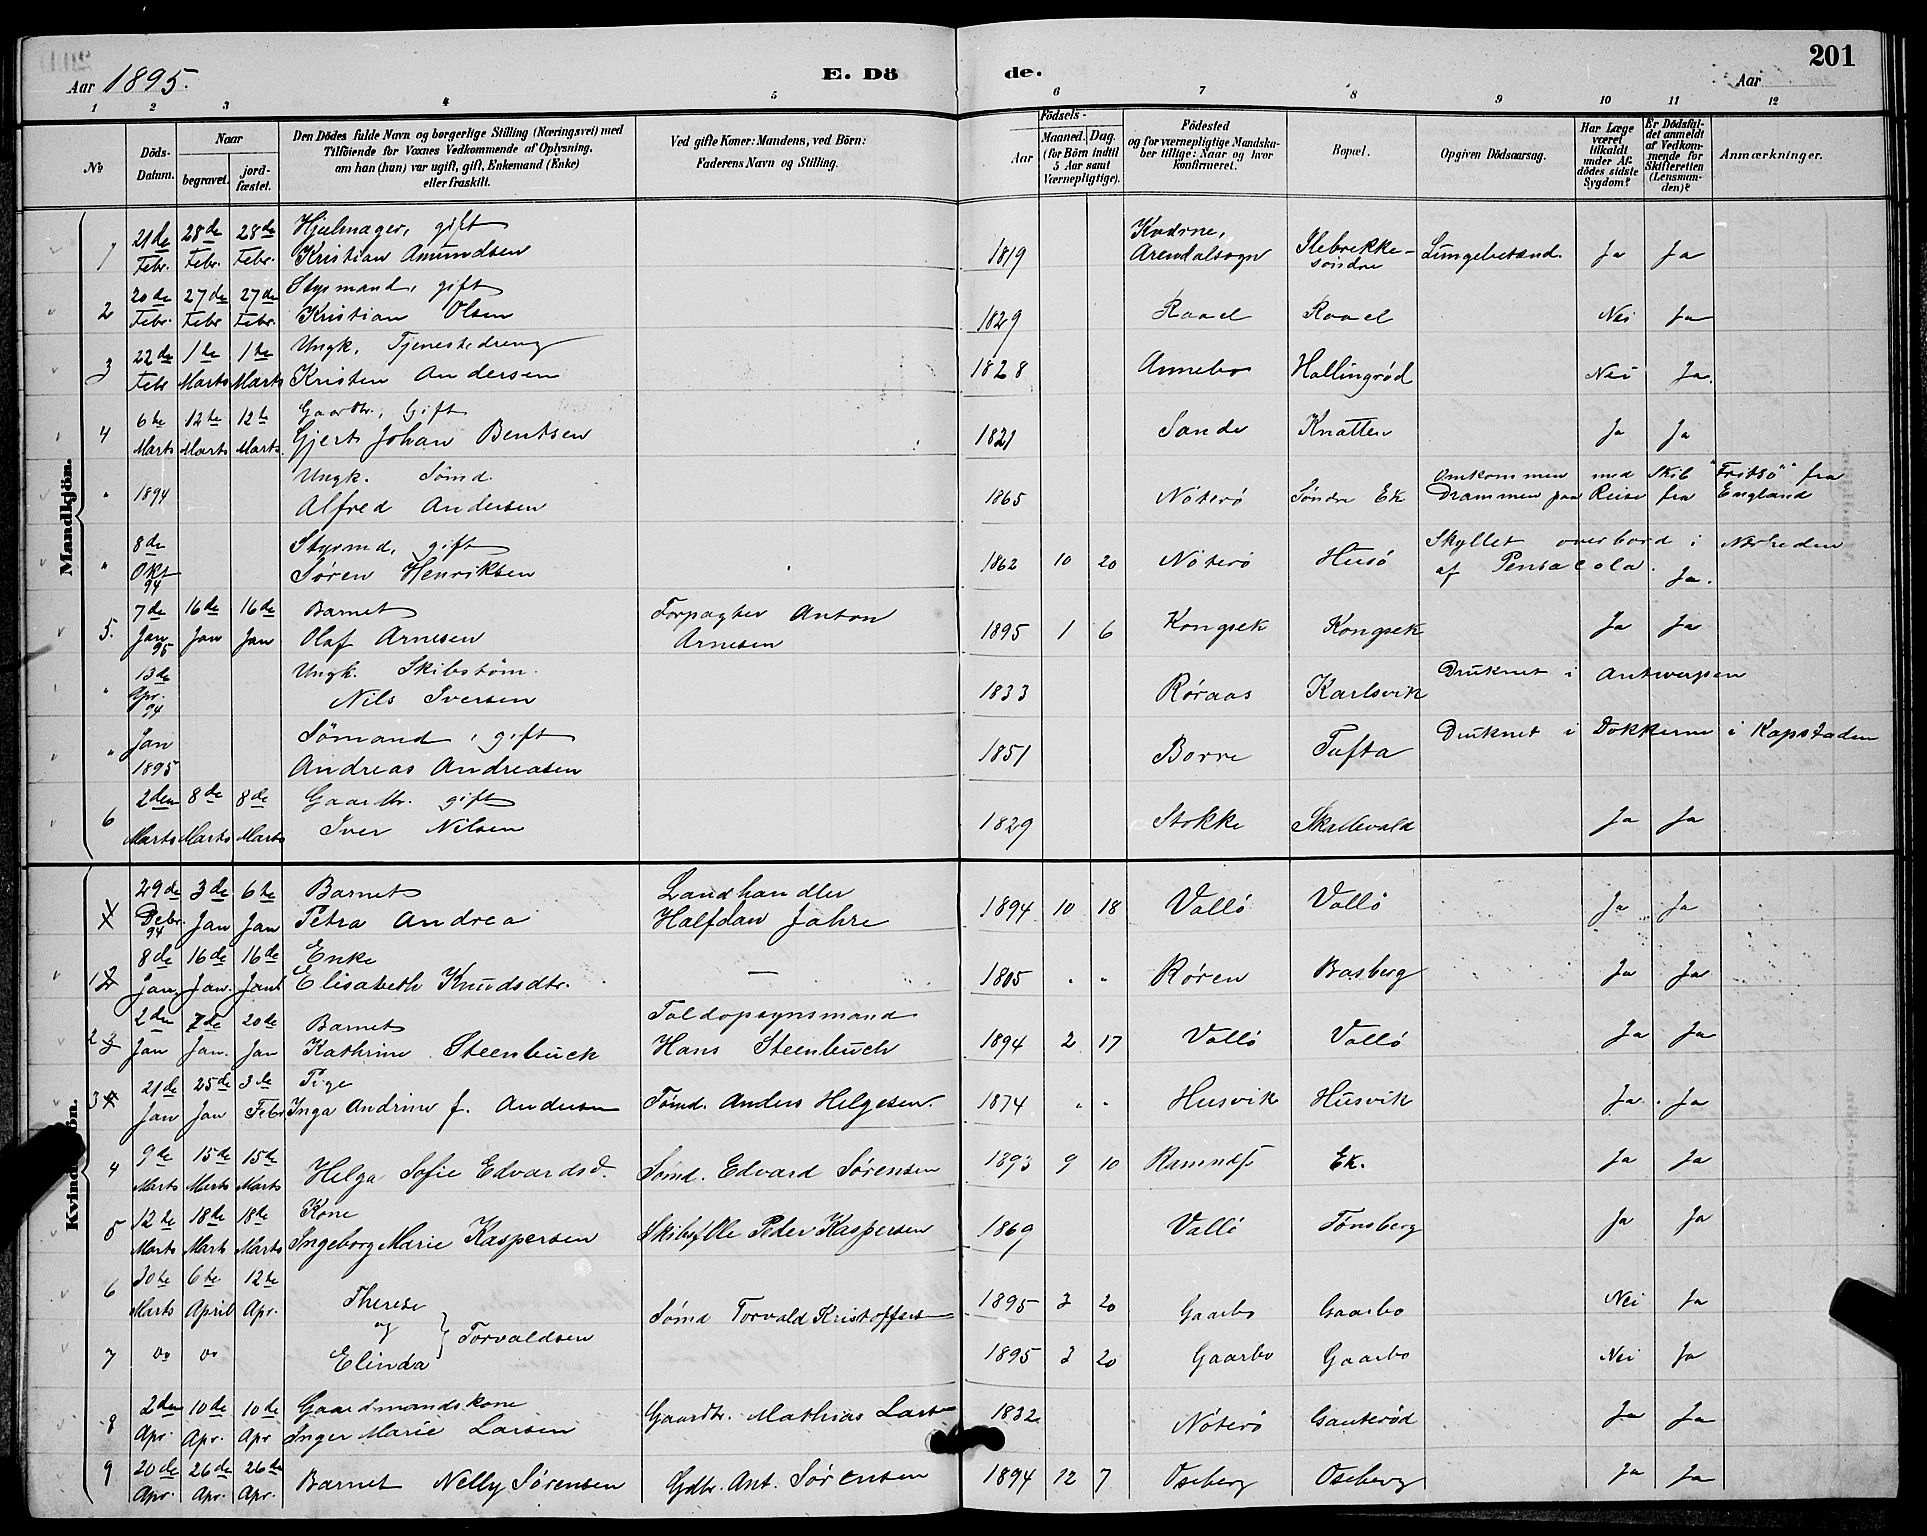 201
Aar 1895. E. Dö de. Aar
1 2 3 4 5 6 7 8 9 10 11 12
No Döds-Datum. Naar begravet. jordfæstet. Den Dödes fulde Navn og borgerlige Stilling (Næringsvei) med Tilföiende for Voxnes Vedkommende af Oplysning, om han (hun) var ugift, gift, Enkemand (Enke) eller fraskilt. Ved gifte Koner: Mandens, ved Börn: Faderens Navn og Stilling. Födsels- Aar Maaned. Dag. (for Börn indtil 5 Aar samt Værnepligtige). Födested og for værnepligtige Mandskaber tillige: Naar og hvor konfirmeret. Bopæl. Opgiven Dödsaarsag. Har Læge været tilkaldt under Afdödes sidste Sygdom? Er Dödsfaldet anmeldt af Vedkommende for Skifteretten (Lensmanden)? Anmærkninger.
Mandkjön.
1 21de Febr. 28de Febr. 28de Febr. Hjulmager, gift
Kristian Amundsen 1819 Arendalsogn Ilebrekke søndre Lungebetænd. Ja Ja
2 20de Febr. 27de Febr 27de Febr. Stysmand, gift
Kristian Olsen 1829 Raael Raael Nei Ja
3 22de Febr 1te Marts 1te Marts Ungk. Tjenestedreng
Kristen Andersen 1828 Annebo Hallingrød Nei Ja.
4 6te Marts 12te Marts 12te Marts. Gaardbr., Gift
Gjert Johan Bentsen 1821 Sande Knatten Ja Ja
" 1894 Ungk. Sømd.
Alfred Andersen 1865 Nøterø Søndre Ek Omkommen med Skib "Fritsö" fra
Drammen paa Reise fra England
" 8de Okt 94 Styrmd, gift
Søren Henriksen 1862 10 20 Nøterø Husö Skyllet overbord i Nærheden
af Pensacola. Ja.
5. 7de Jan 95 16de Jan 16de Jan Barnet
Olaf Arnesen Forpagter Anton Arnesen 1895 1 6 Kongsek Kongsek Ja Ja
" 13de Apr. 94 Ungk. Skibstøm.
Nils Iversen 1833 Røraas Karlsvik Druknet i Antwerpen
" Jan 1895 Sømand, gift
Andreas Andreasen 1851 Borre Tufta Druknet i Dokkerne i Kapstaden
6 2den Marts 8de Marts 8de Marts Gaardbr. gift
Iver Nilsen 1829 Stokke Skallevold Ja Ja
Kvindekjön.
1 29de Debr. 94 3de Jan 6te Jan Barnet
Petra Andrea Landhandler Halfdan Jahre 1894 10 18 Vallö Vallö Ja Ja
1 2 8de Jan. 16de Jan. 16de Jan Enke
Elisabeth Knudsdtr. — 1805 " " Røren Basberg Ja Ja
2 3 2den Jan 7de Jan. 20de Jan Barnet
Kathrine Steenbuck Toldopsynsmand Hans Steenbuch 1894 2 17 Vallö Vallö Ja Ja
3 4 21de Jan 25de Jan 3de Febr Pige
Inga Andrine f. Andersen Tømd. Anders Helgesen. 1874 " " Husvik Husvik Ja. Ja
4 9de Marts 15de Marts 15de Marts Helga Sofie Edvardsd. Sømd. Edvard Sørensen 1893 9 10 Ramnæs Ek. Ja Ja
5 12te Marts 18de Marts 18de Marts Kone
Ingeborg Marie Kaspersen Peder Kaspersen 1869 Vallö Tønsberg Ja Ja
6 30te Marts 6te April 12te Apr. Therese
og } Torvaldsen Sømd Torvald Kristoffersen 1895 3 20 Gaarbo Gaarbo Nei Ja
7 do do Elinda 1895 3 20 Gaarbo Gaarbo Nei Ja
8 2den Apr. 10de Apr. 10de Apr Gaardmandskone
Inger Marie Larsen Gaardbr. Mathias Larsen 1832 Nøterø Gauterød Ja Ja
9 20de Apr. 26de Apr. 26de Apr. Barnet Nelly Sørensen Gdbr. Ant. Sørensen 1894 12 7 Oseberg Oseberg Ja Ja